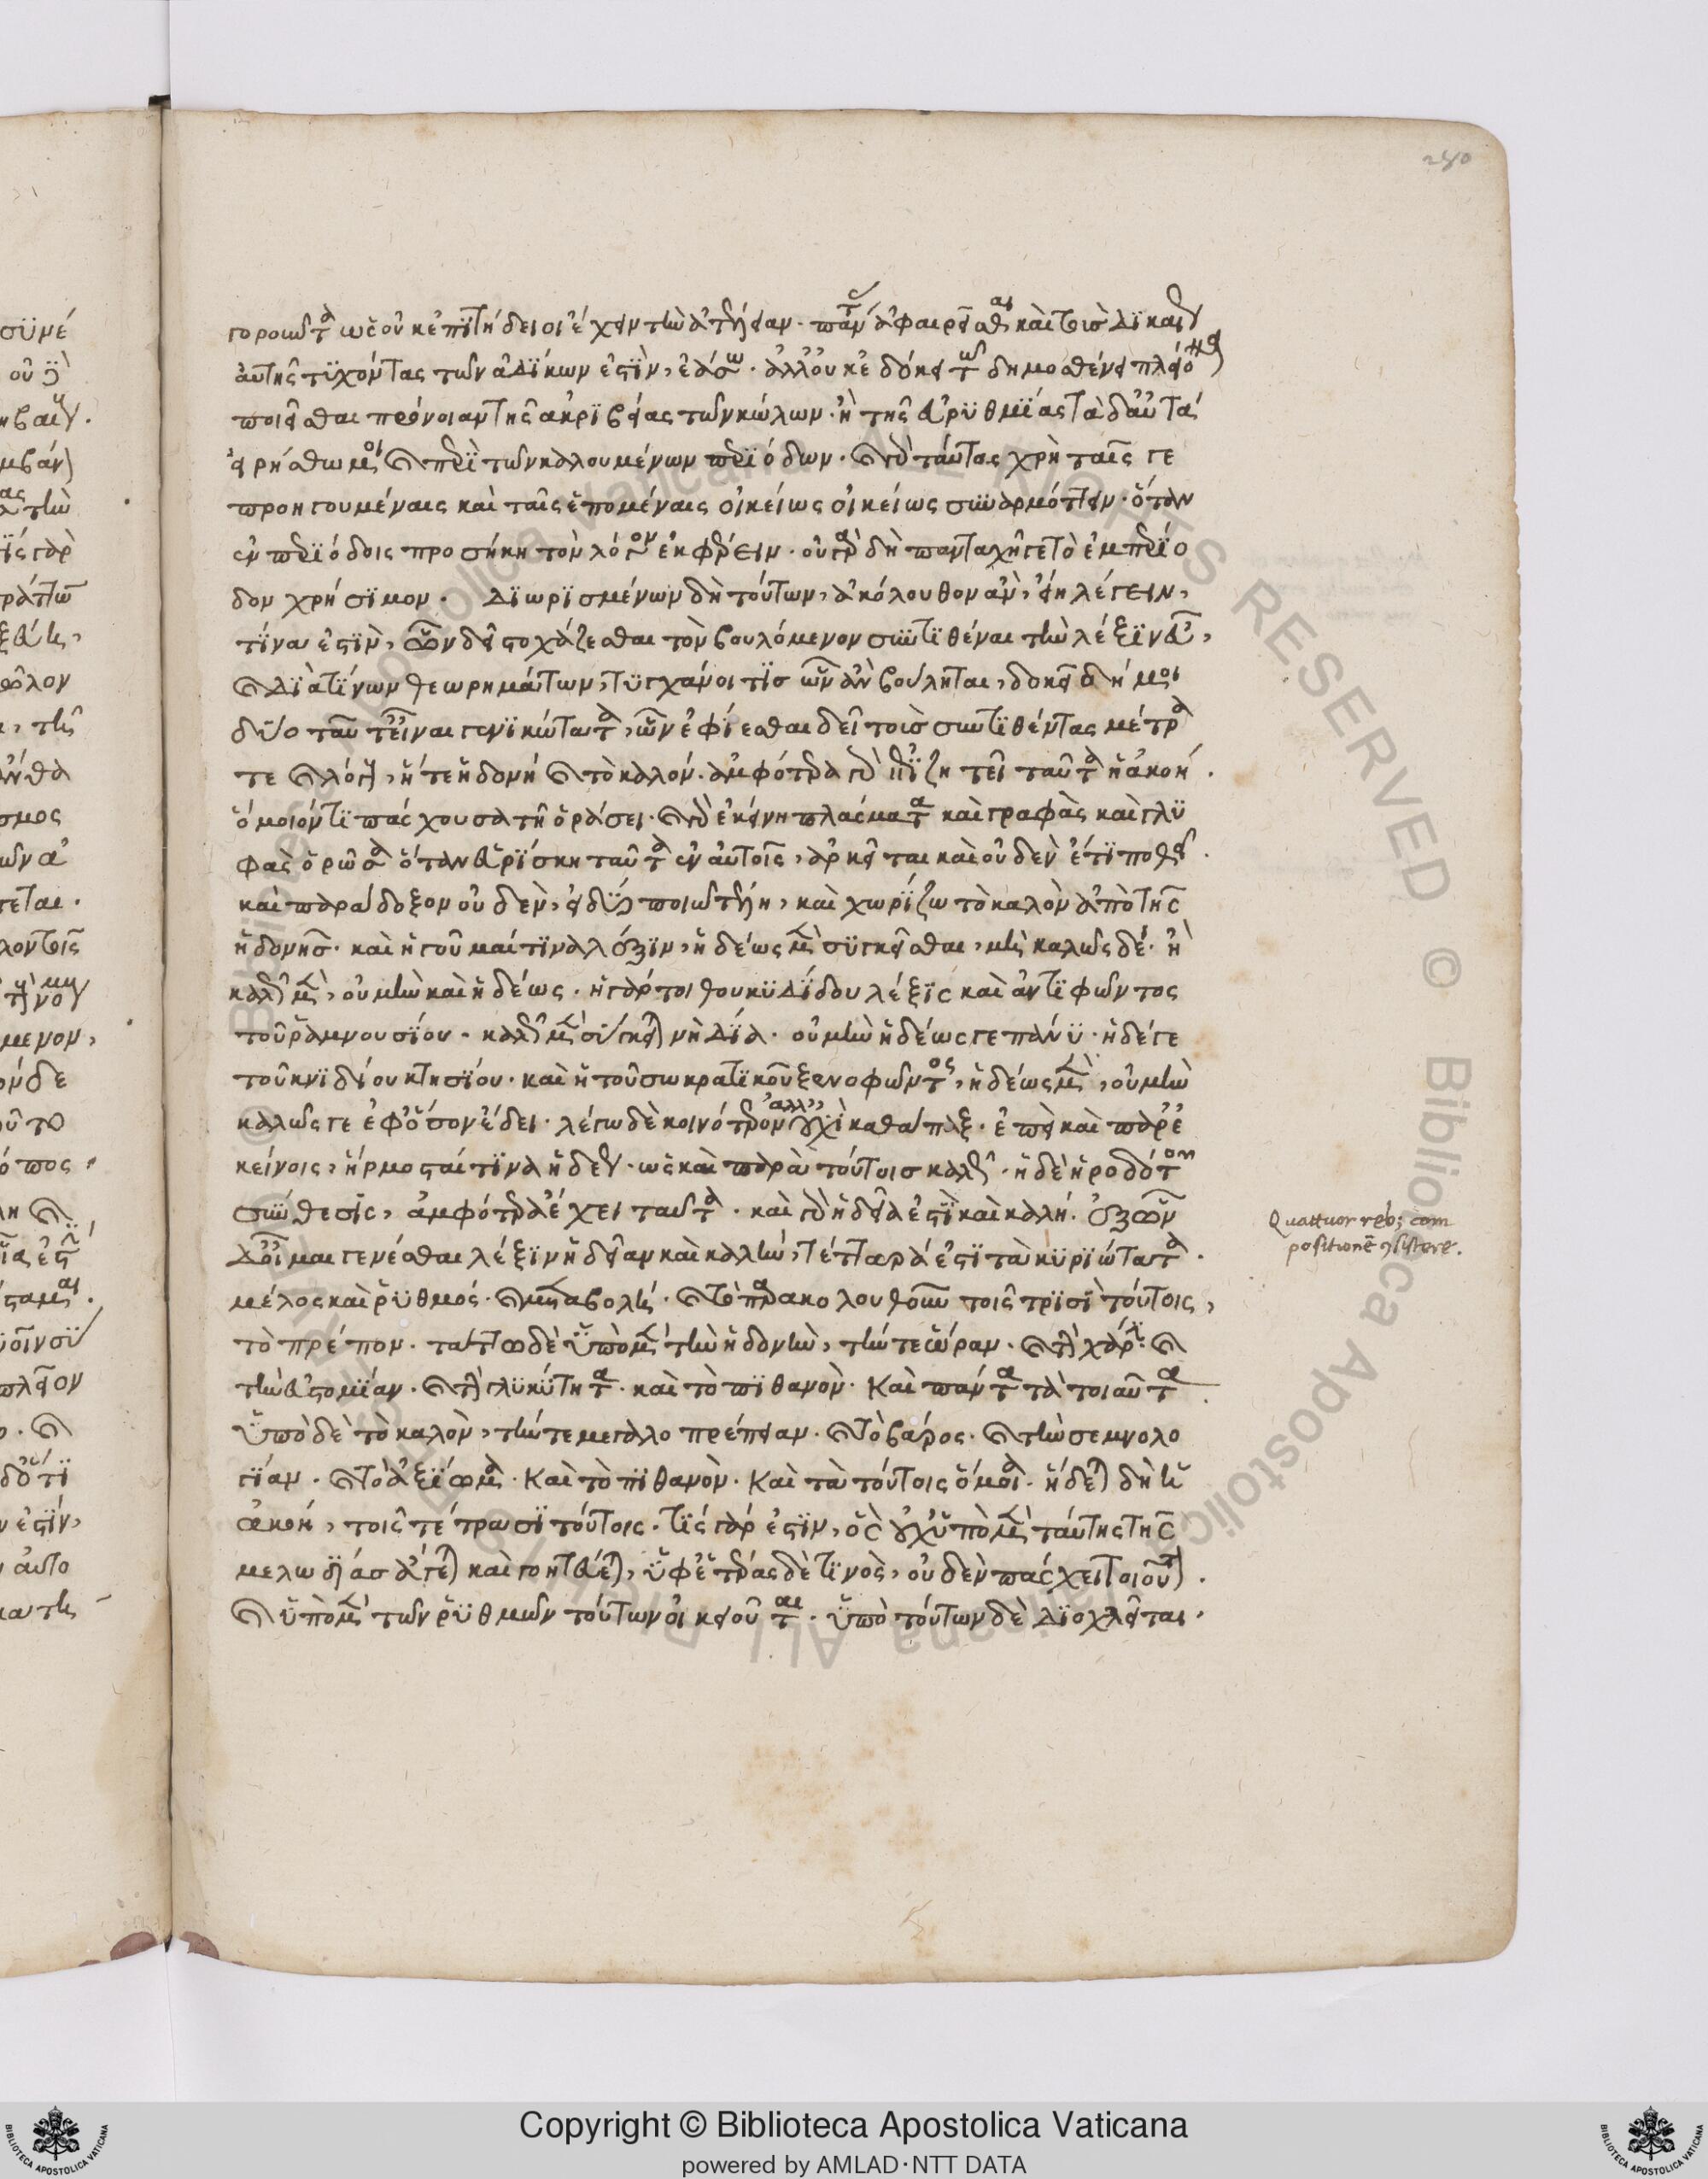 280
γοροιῶτα ὡς οὐκ ἐπιτήδειοι ἔχειν τὴν ἀτέλειαν. πάντας ἀφαιρεῖσθαι καὶ τοὺς δικαίως
αὐτῆς τυχόντας τῶν ἀδίκων ἐστὶν, ἐάσω. ἀλλ' οὐκ ἐδόκει τῶ δημοσθένει πλείονος
ποιεῖσθαι πρόνοιαν τῆς ἀκριβείας τῶν κώλων. ἢ τῆς εὐρυθμίας τὰ δ' αὐτὰ
εἰρήσθω μοι καὶ περὶ τῶν καλουμένων περιόδων. καὶ γὰρ ταύτας χρὴ ταῖς γε
προηγουμέναις καὶ ταῖς ἑπομέναις οἰκείως οἰκείως συναρμόττειν. ὅταν
ἐν περιόδοις προσήκη τὸν λόγον ἐκφέρειν. οὐ γὰρ δὴ πανταχῆ γε τὸ ἐμπερίο
δον χρήσιμον. Διωρισμένων δὴ τούτων, ἀκόλουθον ἂν εἴη λέγειν,
τίνα ἐστὶν, ὧν δεῖ στοχάζεσθαι τὸν βουλόμενον συντιθέναι τὴν λέξιν εὖ,
καὶ διὰ τίνων θεωρημάτων, τυγχάνοι τις ὧν ἂν βούληται, δοκεῖ δή μοι
δύο ταῦτ' εἶναι γενικώτατα, ὧν ἐφίεσθαι δεῖ τοὺς συντιθέντας μέτρα
τε καὶ λόγους, ἥ τε ἡδονὴ καὶ τὸ καλόν. ἀμφότερα γὰρ ἐπιζητεῖ ταῦτα ἡ ἀκοή.
ὅμοιόν τι πάσχουσα τῆ ὁράσει. καὶ γὰρ ἐκείνη πλάσματα καὶ γραφὰς καὶ γλυ
φὰς ὁρῶσα ὅταν εὑρίσκη ταῦτα ἐν αὐτοῖς, ἀρκεῖται καὶ οὐδὲν ἔτι ποθεῖ.
καὶ παράδοξον οὐδὲν, εἰ δύο ποιῶ τέλη, καὶ χωρίζω τὸ καλὸν ἀπὸ τῆς
ἡδονῆς. καὶ ἡγοῦμαί τινα λέξιν, ἡδέως μὲν συγκεῖσθαι, μὴ καλῶς δέ. ἢ
καλῶς μὲν, οὐ μὴν καὶ ἡδέως. ἡ γάρ τοι θουκυδίδου λέξις καὶ ἀντιφῶντος
τοῦ ῥαμνουσίου. καλῶς μὲν σύγκειται νὴ Δία. οὐ μὴν ἡδέως γε πάνυ. ἡ δέ γε
τοῦ κνιδίου κτησίου. καὶ ἡ τοῦ σωκρατικοῦ ξενοφῶντος, ἡδέως μὲν, οὐ μὴν
καλῶς γε ἐφ' ὅσον ἔδει. λέγω δὲ κοινότερον ἀλλ' οὐχὶ καθάπαξ. ἐπεὶ καὶ παρ' ἐ
κείνοις, ἥρμοσταί τινα ἡδέως. ὡς καὶ παρὰ τούτοις καλῶς. ἡ δὲ ἡροδότου
σύνθεσις, ἀμφότερα ἔχει ταῦτα. καὶ γὰρ ἡδεῖά ἐστι καὶ καλή. ἐξ ὧν
δ' οἶμαι γενέσθαι λέξιν ἡδεῖαν καὶ καλὴν, τέτταρά ἐστι τὰ κυριώτατα.
μέλος καὶ ῥυθμός. καὶ μεταβολή. καὶ τὸ παρακολουθοῦν τοῖς τρισὶ τούτοις,
τὸ πρέπον. τάττω δὲ ὑπὸ μὲν τὴν ἡδονὴν, τήν τε ὥραν. καὶ τὴν χάριν. καὶ
τὴν εὐστομίαν. καὶ τὴν γλυκύτητα. καὶ τὸ πιθανὸν. Καὶ πάντα τὰ τοιαῦτα
ὑπὸ δὲ τὸ καλὸν, τήν τε μεγαλοπρέπειαν. καὶ τὸ βάρος. καὶ τὴν σεμνολο
γίαν. καὶ τὸ ἀξίωμα. Καὶ τὸ πιθανὸν. Καὶ τὰ τούτοις ὅμοια. ἥδεται δὴ ἡ
ἀκοὴ, τοῖς τέτρασι τούτοις. τίς γάρ ἐστιν, ὃς οὐχ ὑπὸ μὲν ταύτης τῆς
μελωδίας ἄγεται καὶ γοητεύεται, ὑφ' ἑτέρας δὲ τινὸς, οὐδὲν πάσχει τοιοῦτον.
καὶ ὑπὸ μὲν τῶν ῥυθμῶν τούτων οἰκειοῦται. ὑπὸ τούτων δὲ διοχλεῖται.
Quattuor rebus com
positionem consistere.
Copyright © Biblioteca Apostolica Vaticana
powered by AMLAD·NTT DATA